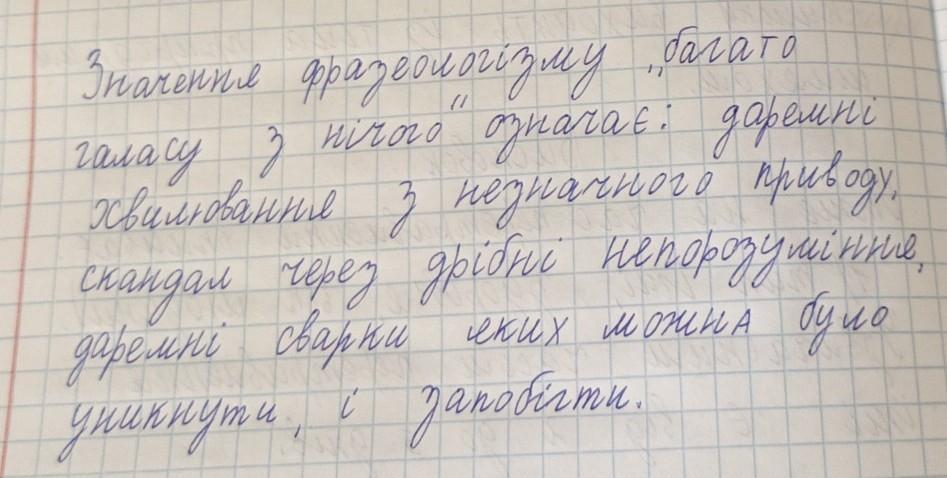 Значення фразеологізму „багато
галасу з нічого" означає: даремні
хвилювання з незначного приводу,
скандал через дрібні непорозуміння,
даремні сварки яких можна було
уникнути, і запобігти.